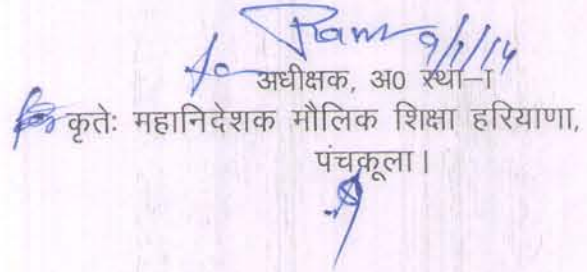 9/1/14
अधीक्षक, अ0 स्था–I
कृतेः महानिदेशक मौलिक शिक्षा हरियाणा,
पंचकूला।